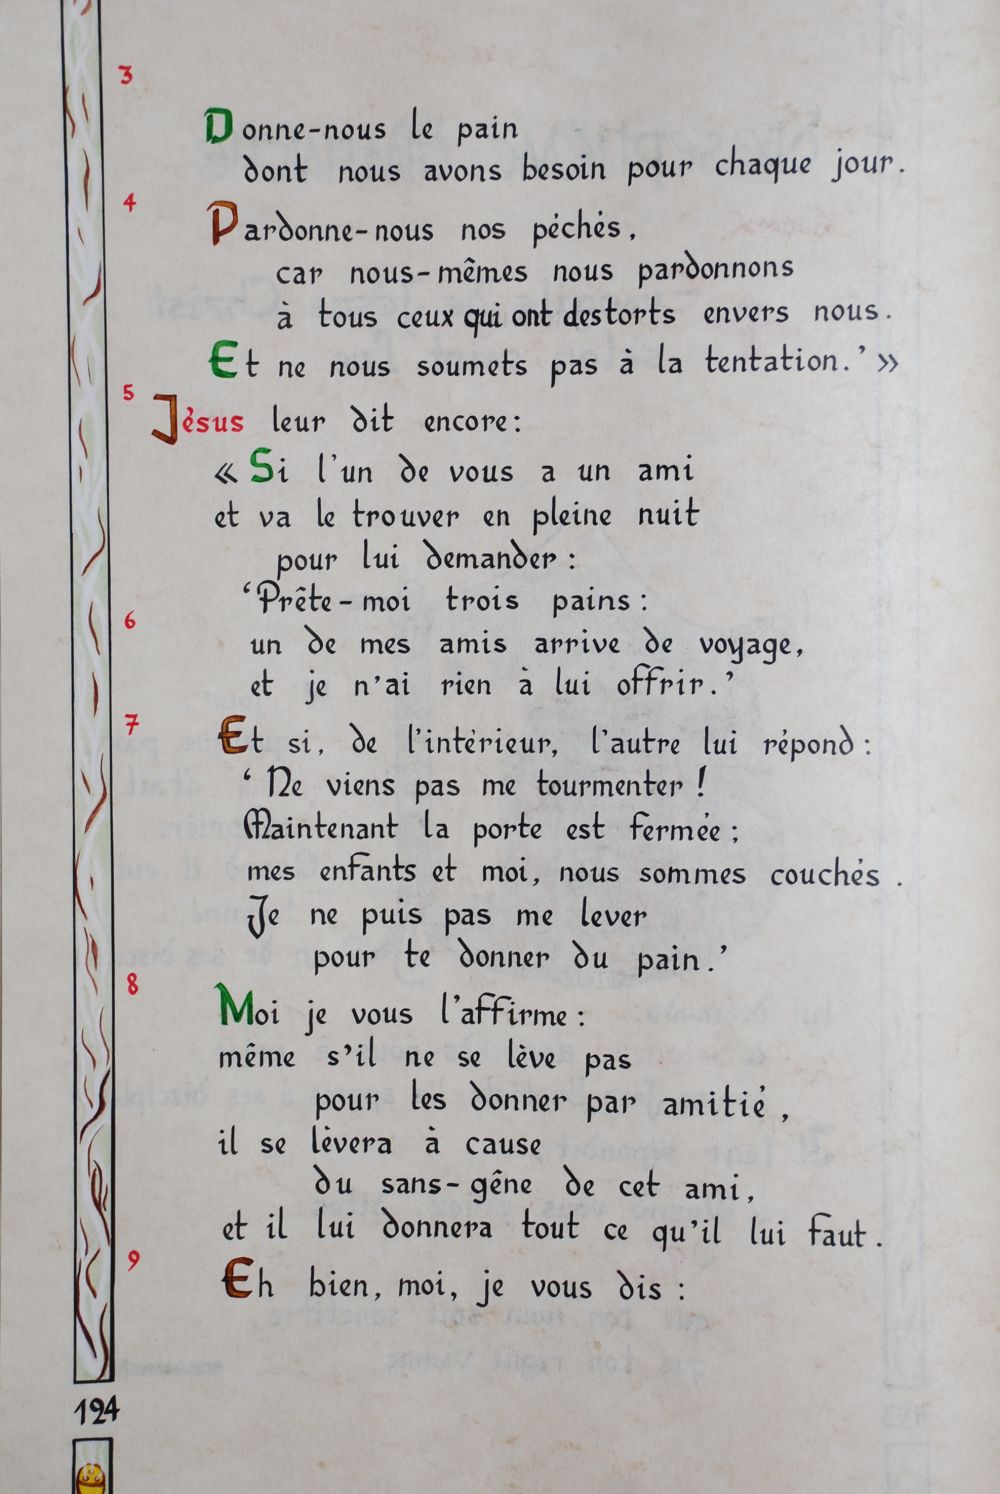 3
Donne-nous le pain
dont nous avons besoin pour chaque jour.
4
Pardonne-nous nos péchés,
car nous-mêmes nous pardonnons
à tous ceux qui ont des torts envers nous.
Et ne nous soumets pas à la tentation.’ »
5
Jésus leur dit encore:
« Si l'un de vous a un ami
et va le trouver en pleine nuit
pour lui demander :
‘Prête-moi trois pains :
6
un de mes amis arrive de voyage,
et je n'ai rien à lui offrir.’
7
Et si, de l'intérieur, l'autre lui répond :
‘ Ne viens pas me tourmenter !
Maintenant la porte est fermée ;
mes enfants et moi, nous sommes couchés .
Je ne puis pas me lever
pour te donner du pain.’
8
Moi je vous l'affirme :
même s'il ne se lève pas
pour les donner par amitié ,
il se lèvera à cause
du sans-gêne de cet ami,
et il lui donnera tout ce qu'il lui faut .
9
Eh bien, moi, je vous dis :
124